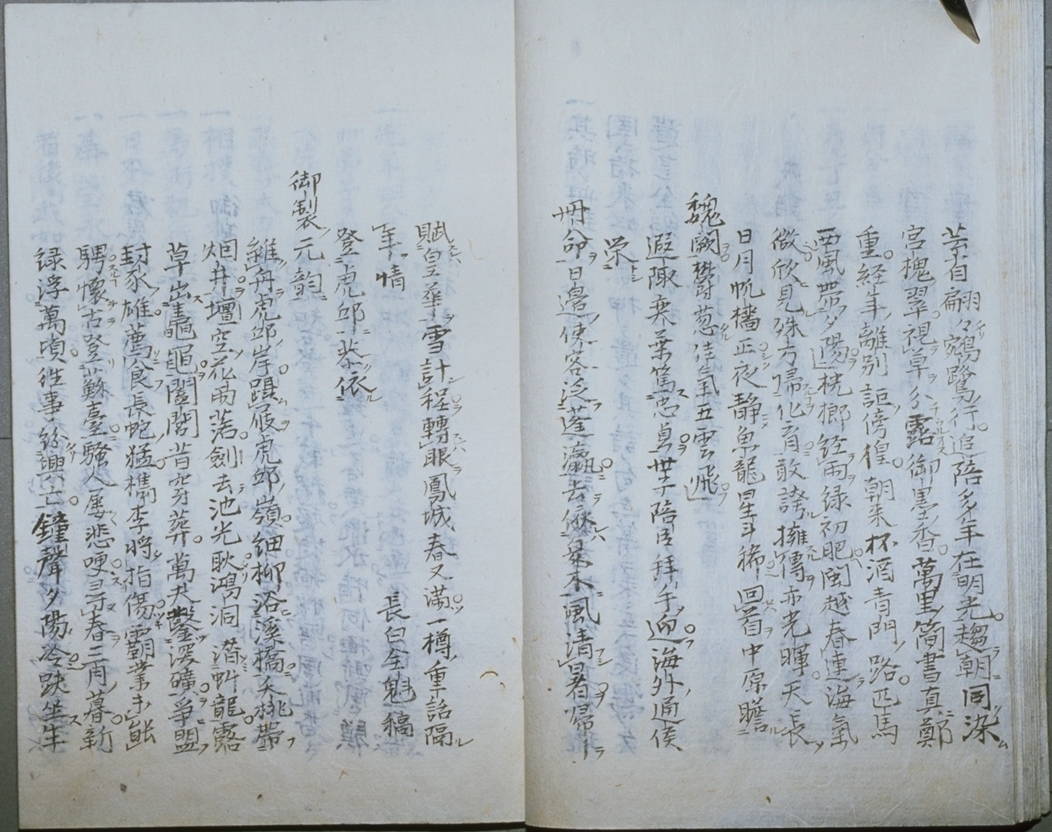 芸自翩々鵷鷺行追陪多年在明光趨朝同染
宮槐翠視草分露御墨香萬里簡書真鄭
重経年離別詎傍徨朝来杯酒青門路匹馬
西風帯夕陽桄榔経雨緑初肥閩越春連海氣
微欣見殊方帰化育敢誇擁傳亦光暉天長
日月帆檣正夜静魚龍星斗稀回首中原瞻
魏闕欝葱佳氣五雲飛
遐陬奕葉篤忠貞世子陪臣拜手迎海外通侯
栄
冊命日邉使客泛蓬瀛
風清暑帰
賦皇華雪計程轉眼鳳城春又滿一樽重話隔
年情
登虎邱恭依 長白全魁稿
御製元韻
維舟虎邱岸躡屐虎邱嶺細柳浴溪橋夭桃帯
烟井壇空花雨落劍去池光耿澒洞潜虬龍露
草出黿鼉闔閭昔穿葬萬夫鑿深礦爭盟
封豕雄薦食長蛇猛檇李將指傷霸業手
騁懷古登蘇臺騷人屡悲哽三春二月暮新
緑浮萬頃往事紛興亡鐘聲夕陽冷趺坐生